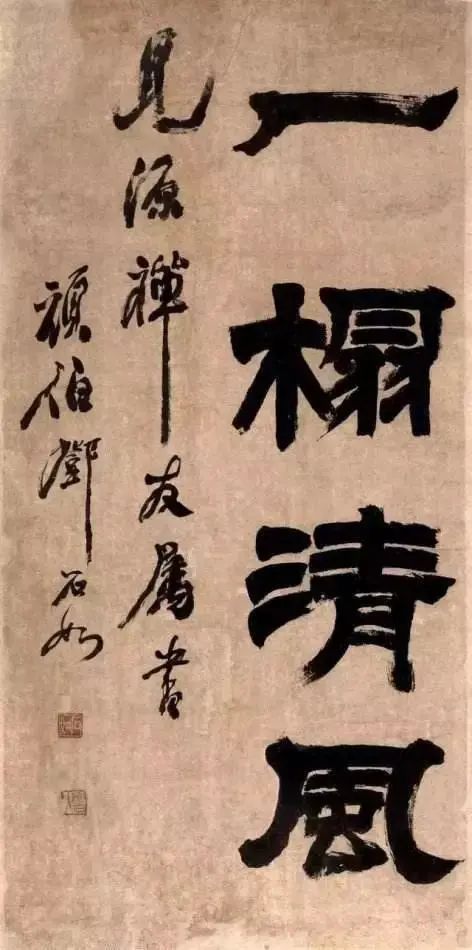 一榻清风
見源禪友屬書
頑伯鄧石如